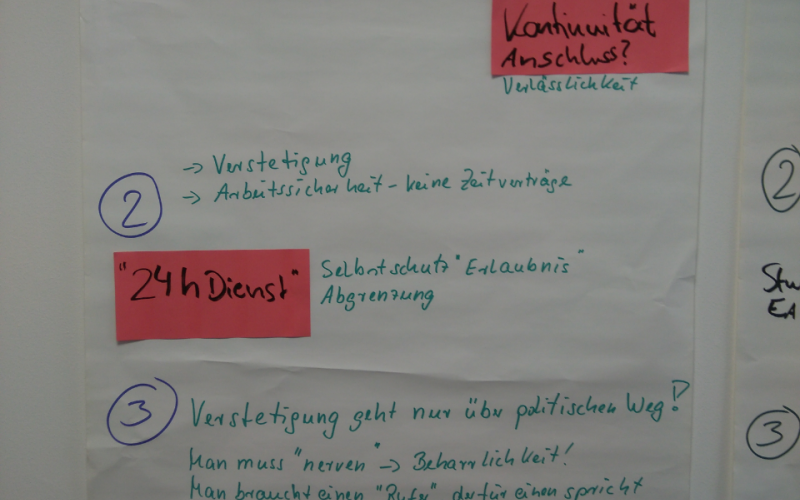 Kontinuität
Anschluss?
Verlässlichkeit
→ Verstetigung
→ Arbeitssicherheit - keine Zeitverträge
2
"24h Dienst"
Selbstschutz "Erlaubnis"
Abgrenzung
3
Verstetigung geht nur über politischen Weg!
Man muss "nerven" → Beharrlichkeit!
Man braucht einen der für einen spricht
2
EA
3